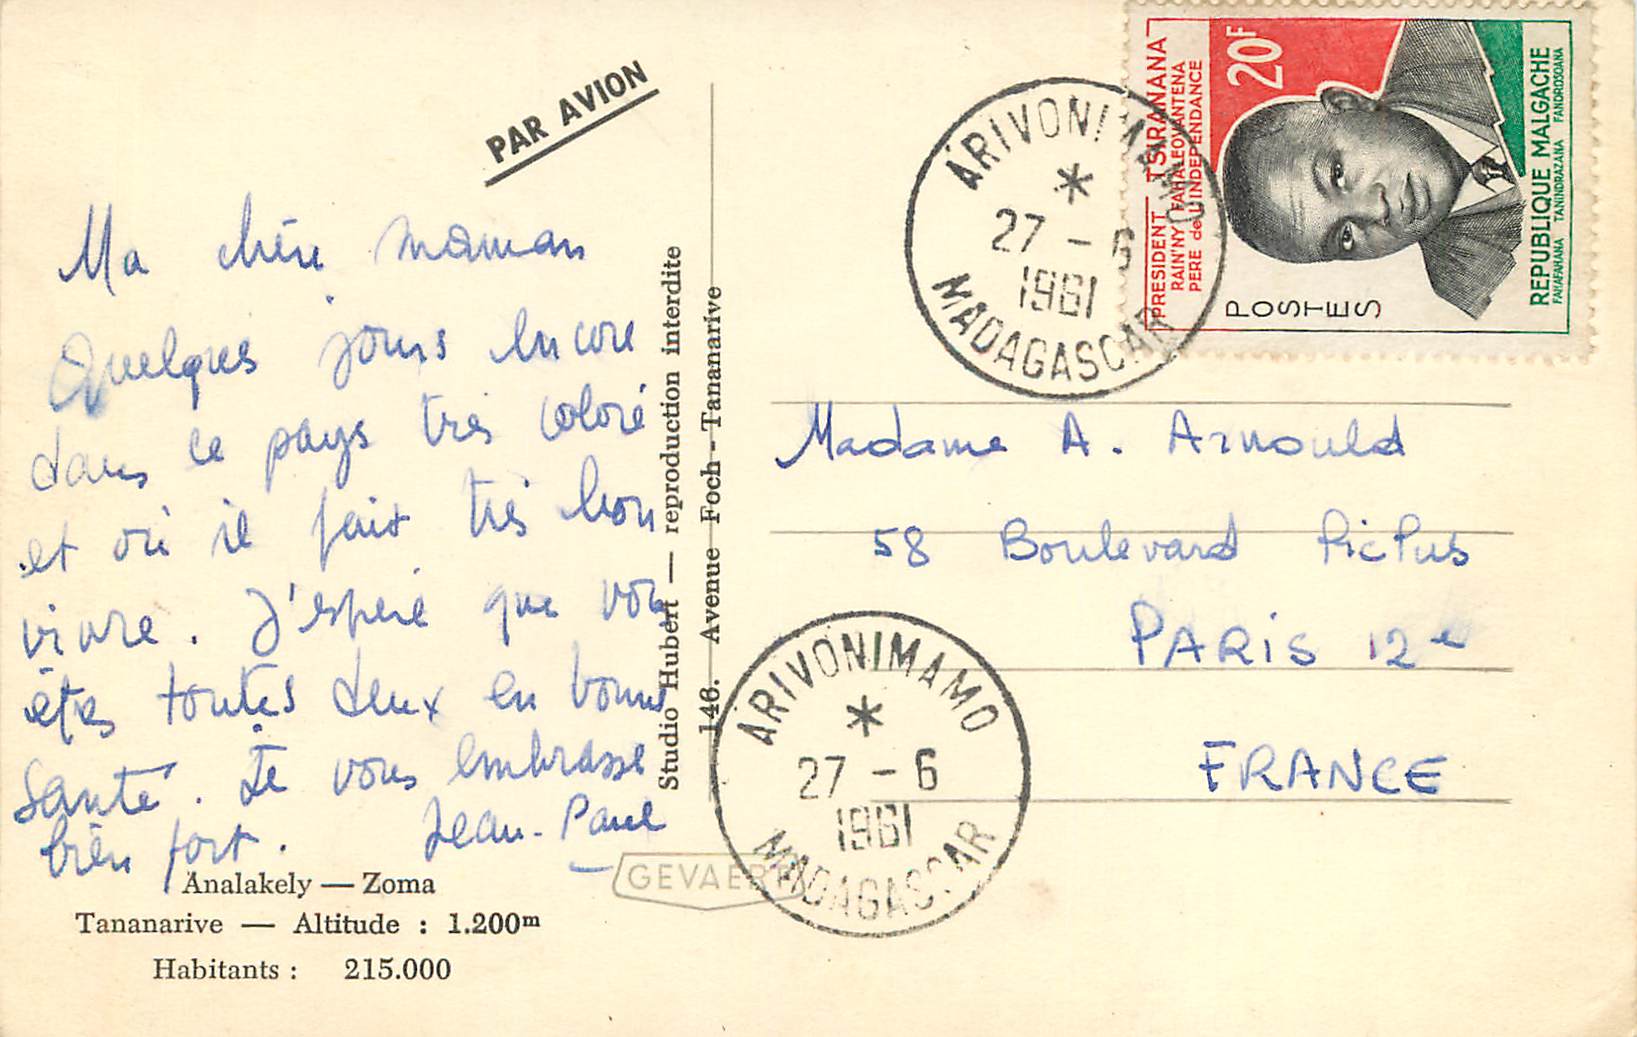 PAR AVION
Ma chère maman
Quelques jours encore
dans ce pays très coloré
et où il fait très bon
vivre. J'espère que vous
êtes toutes deux en bonne
santé. Je vous embrasse
bien fort. Jean-Paul
Analakely — Zoma
Tananarive — Altitude : 1.200m
Habitants : 215.000
Studio Hubert — reproduction interdite
146. Avenue Foch - Tananarive
GEVAERT
ARIVONIMAMO
*
27 - 6
1961
MADAGASCAR
PRESIDENT TSIRANANA
RAIN'NY FAHALEOVANTENA
PERE de l'INDEPENDANCE
20F
POSTES
REPUBLIQUE MALGACHE
FAHAFAHANA TANINDRAZANA FANDROSOANA
Madame A. Arnould
58 Boulevard Picpus
PARIS 12e
FRANCE
ARIVONIMAMO
*
27 - 6
1961
MADAGASCAR